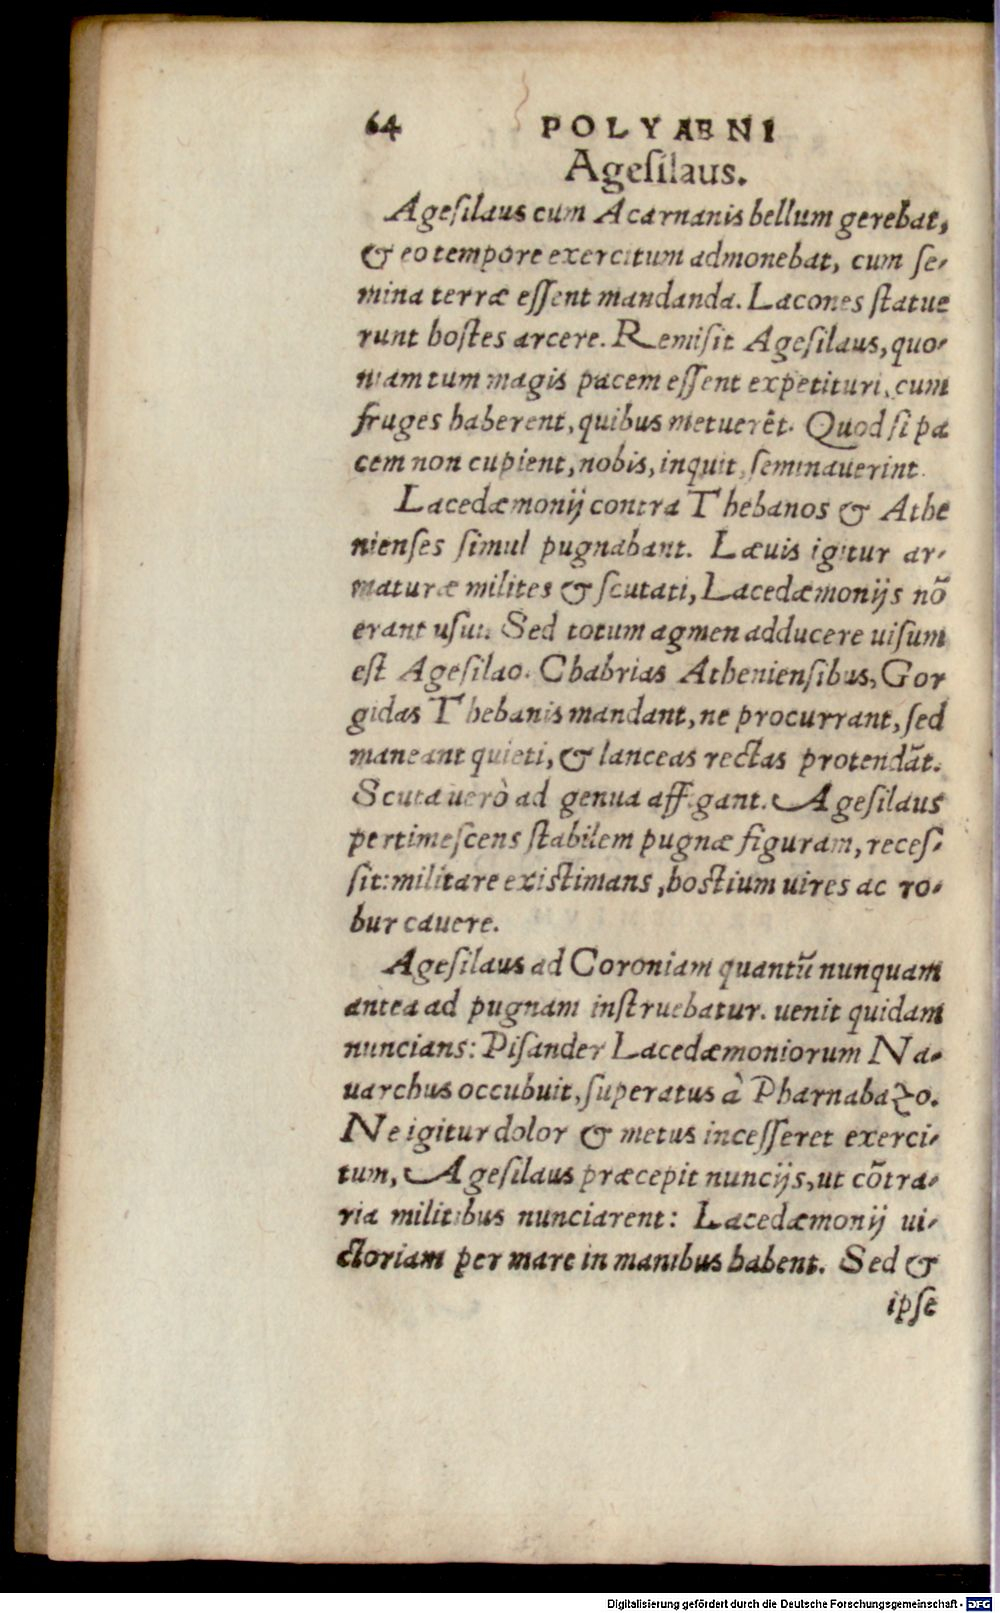 64 POLYAENI
Ageſilaus.
Ageſilaus cum Acarnanis bellum gerebat,
& eo tempore exercitum admonebat, cum ſe-
mina terræ eſſent mandanda. Lacones ſtatue
runt hoſtes arcere. Remiſit Ageſilaus, quo-
niam tum magis pacem eſſent expetituri, cum
fruges haberent, quibus metuerēt. Quod ſi pa
cem non cupient, nobis, inquit, ſeminauerint.
Lacedæmonij contra Thebanos & Athe
nienſes ſimul pugnabant. Læuis igitur ar-
maturæ milites & ſcutati, Lacedæmonijs nō
erant uſui. Sed totum agmen adducere uiſum
eſt Ageſilao. Chabrias Athenienſibus, Gor
gidas Thebanis mandant, ne procurrant, ſed
maneant quieti, & lanceas rectas protendāt.
Scuta uerò ad genua affigant. Ageſilaus
pertimeſcens ſtabilem pugnæ figuram, receſ-
ſit: militare exiſtimans, hoſtium uires ac ro-
bur cauere.
Ageſilaus ad Coroniam quantū nunquam
antea ad pugnam inſtruebatur. uenit quidam
nuncians: Piſander Lacedæmoniorum Na-
uarchus occubuit, ſuperatus à Pharnabazo.
Ne igitur dolor & metus inceſſeret exerci-
tum, Ageſilaus præcepit nuncijs, ut cōtra-
ria militibus nunciarent: Lacedæmonij ui-
ctoriam per mare in manibus habent. Sed &
ipſe
Digitalisierung gefördert durch die Deutsche Forschungsgemeinschaft - DFG